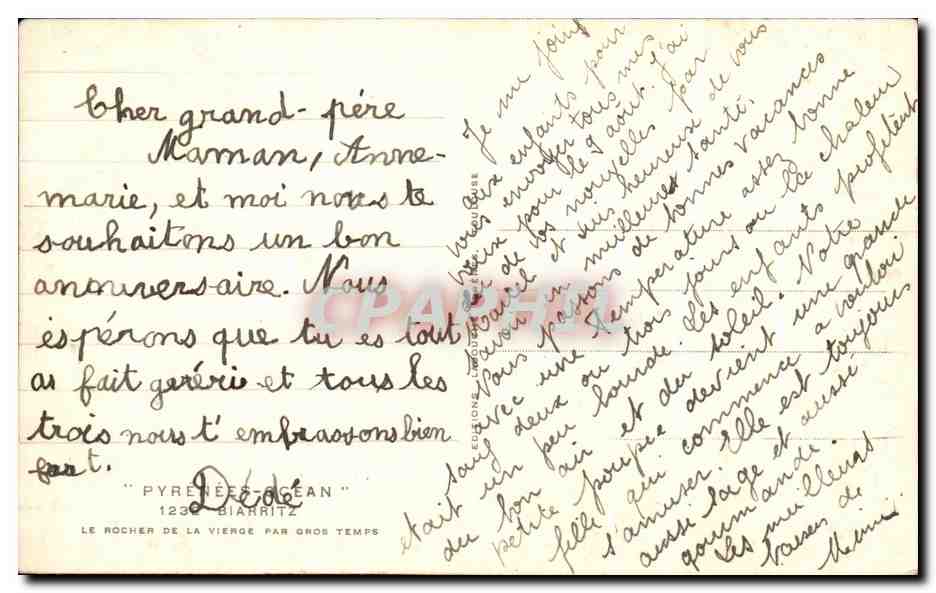 Cher grand-père
Maman, Anne-
marie, et moi nous te
souhaitons un bon
anniversaire. Nous
éspérons que tu es tout
as fait geréri et tous les
trois nous t'embrassons bien
fort.
Dédé
"PYRÉNÉES-OCÉAN"
BIARRITZ
LE ROCHER DE LA VIERGE PAR GROS TEMPS
CPAPHIL
Je me joins
aux enfants pour
vous envoyer tous mes
vœux pour le 9 août. J'ai
eu de vos nouvelles par
Marcel et suis heureuse de vous
savoir en meilleure santé.
Nous passons de bonnes vacances
avec une température assez bonne
sauf deux ou trois jours ou la chaleur
était un peu lourde. Les enfants profitent
du bon air et du soleil. Notre
petite poupée devient une grande
fille qui commence a vouloir
s'amuser. Elle est toujours
aussi sage et aussi
gourmande.
Les meilleurs
baisers de
Mimi